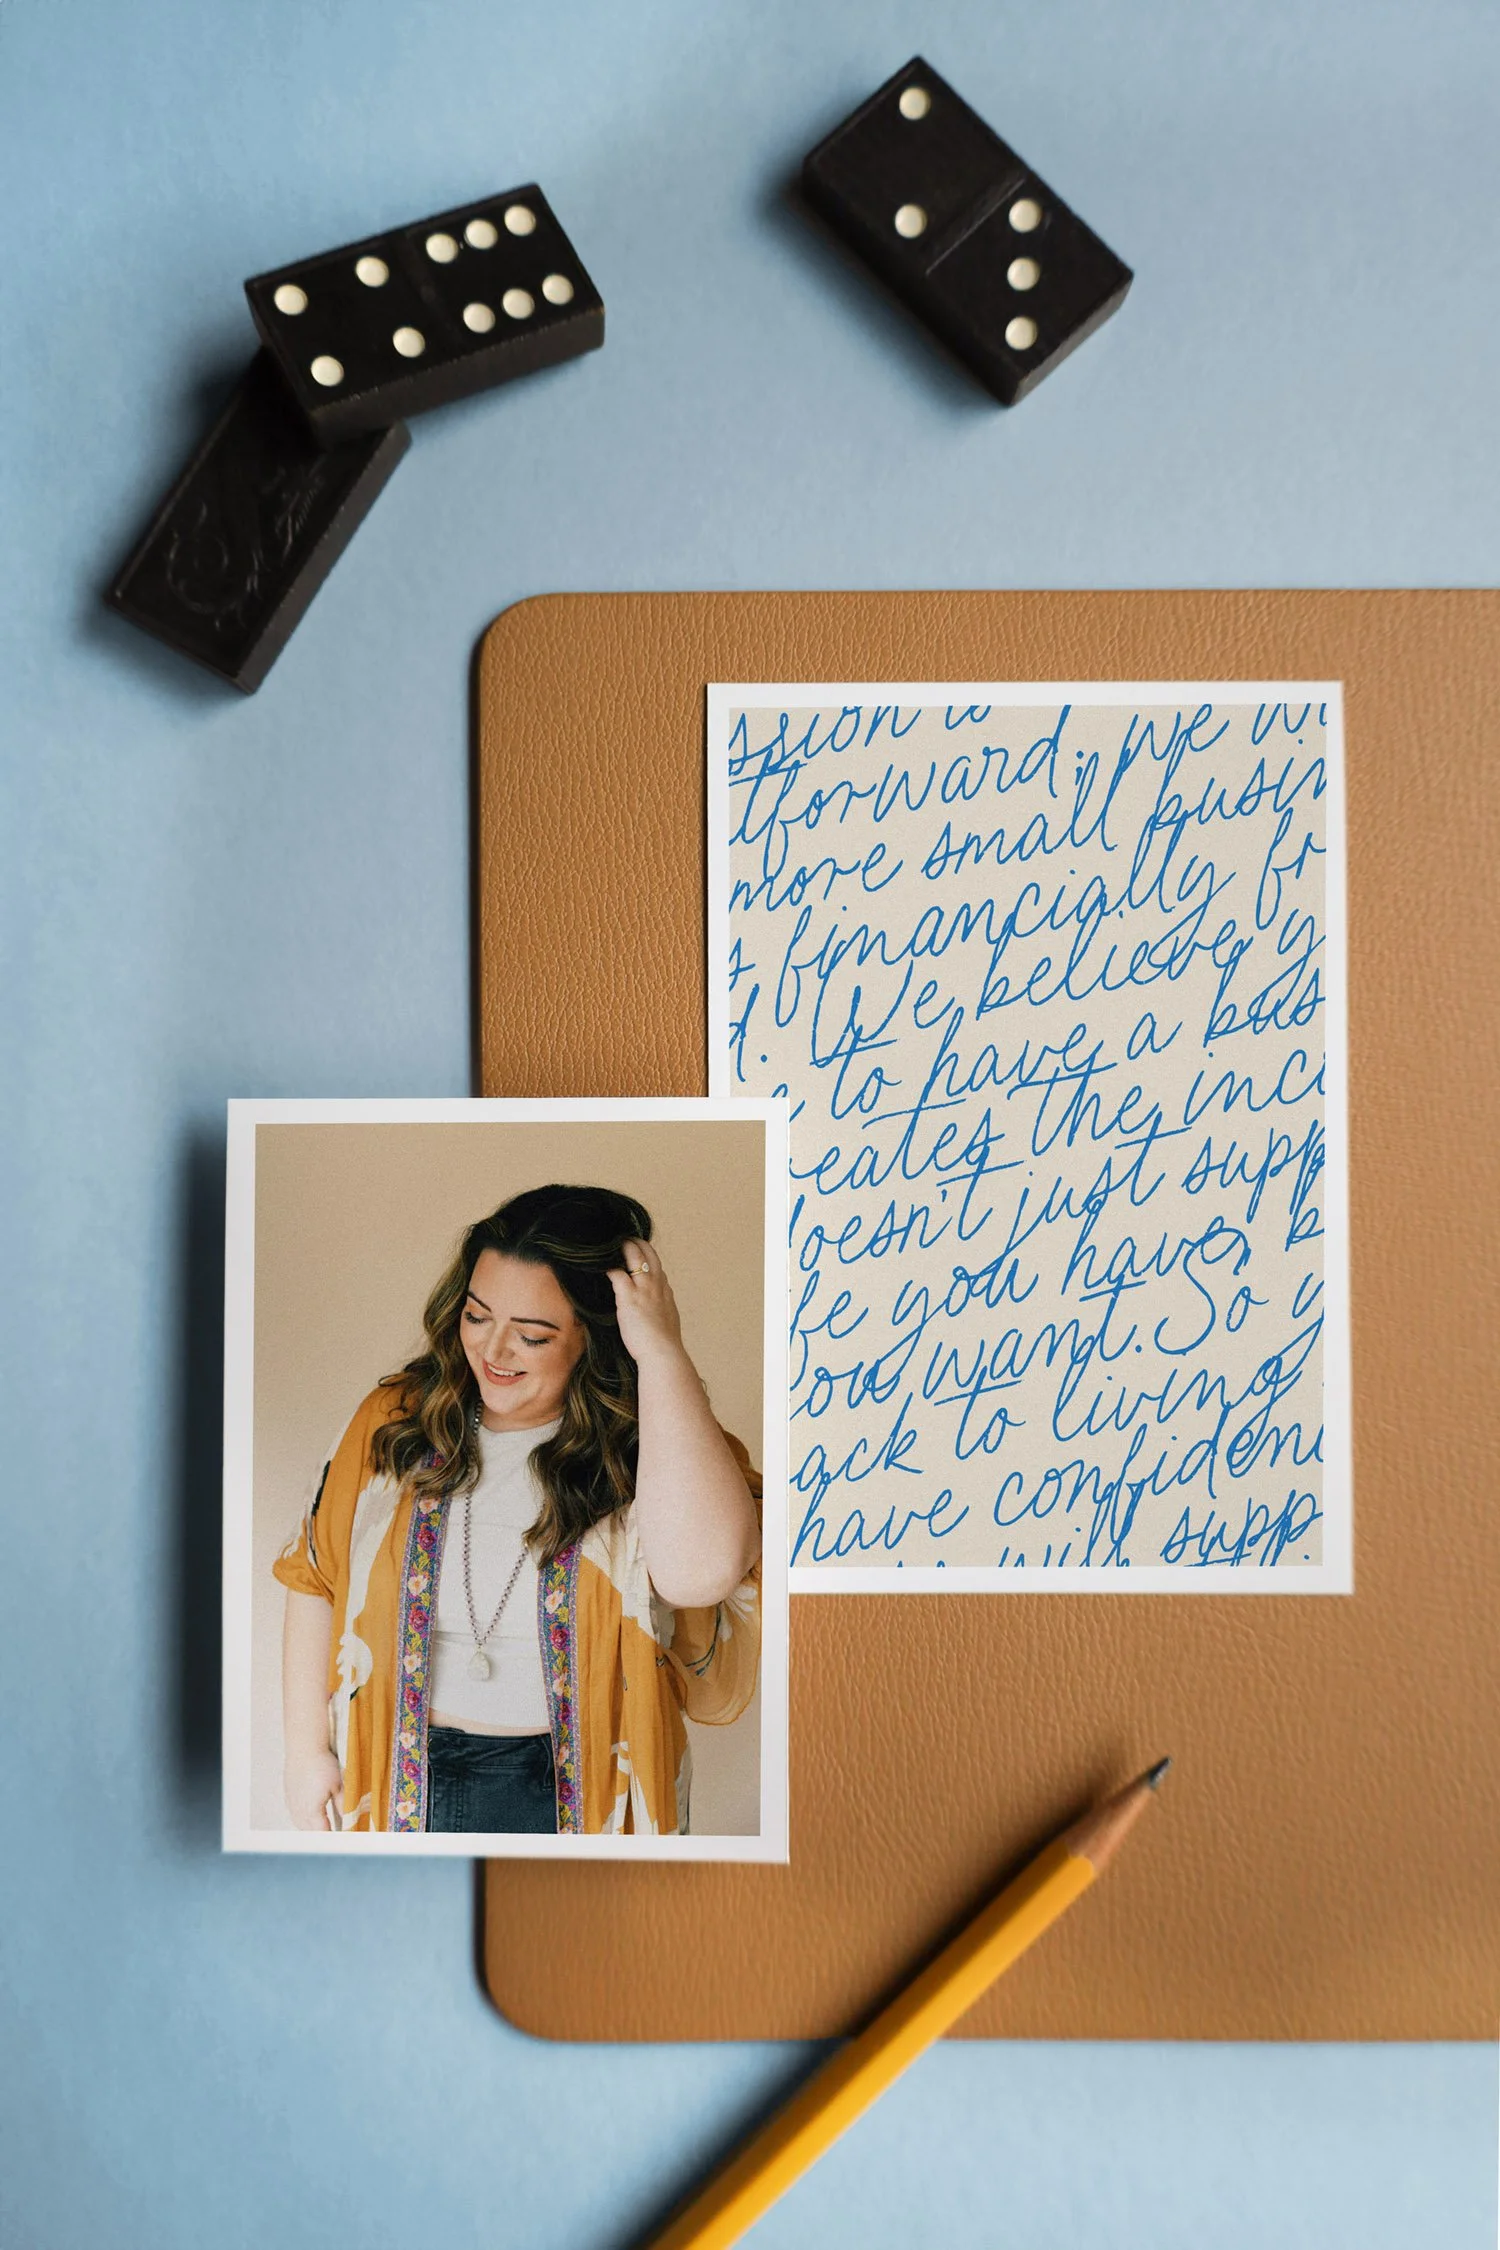 ssion is
tforward: we w
more small busin
s financially fr
d. We believe y
e to have a bus
reates the inco
doesn't just supp
fe you have, b
ou want. So y
ack to living
have confiden
will supp